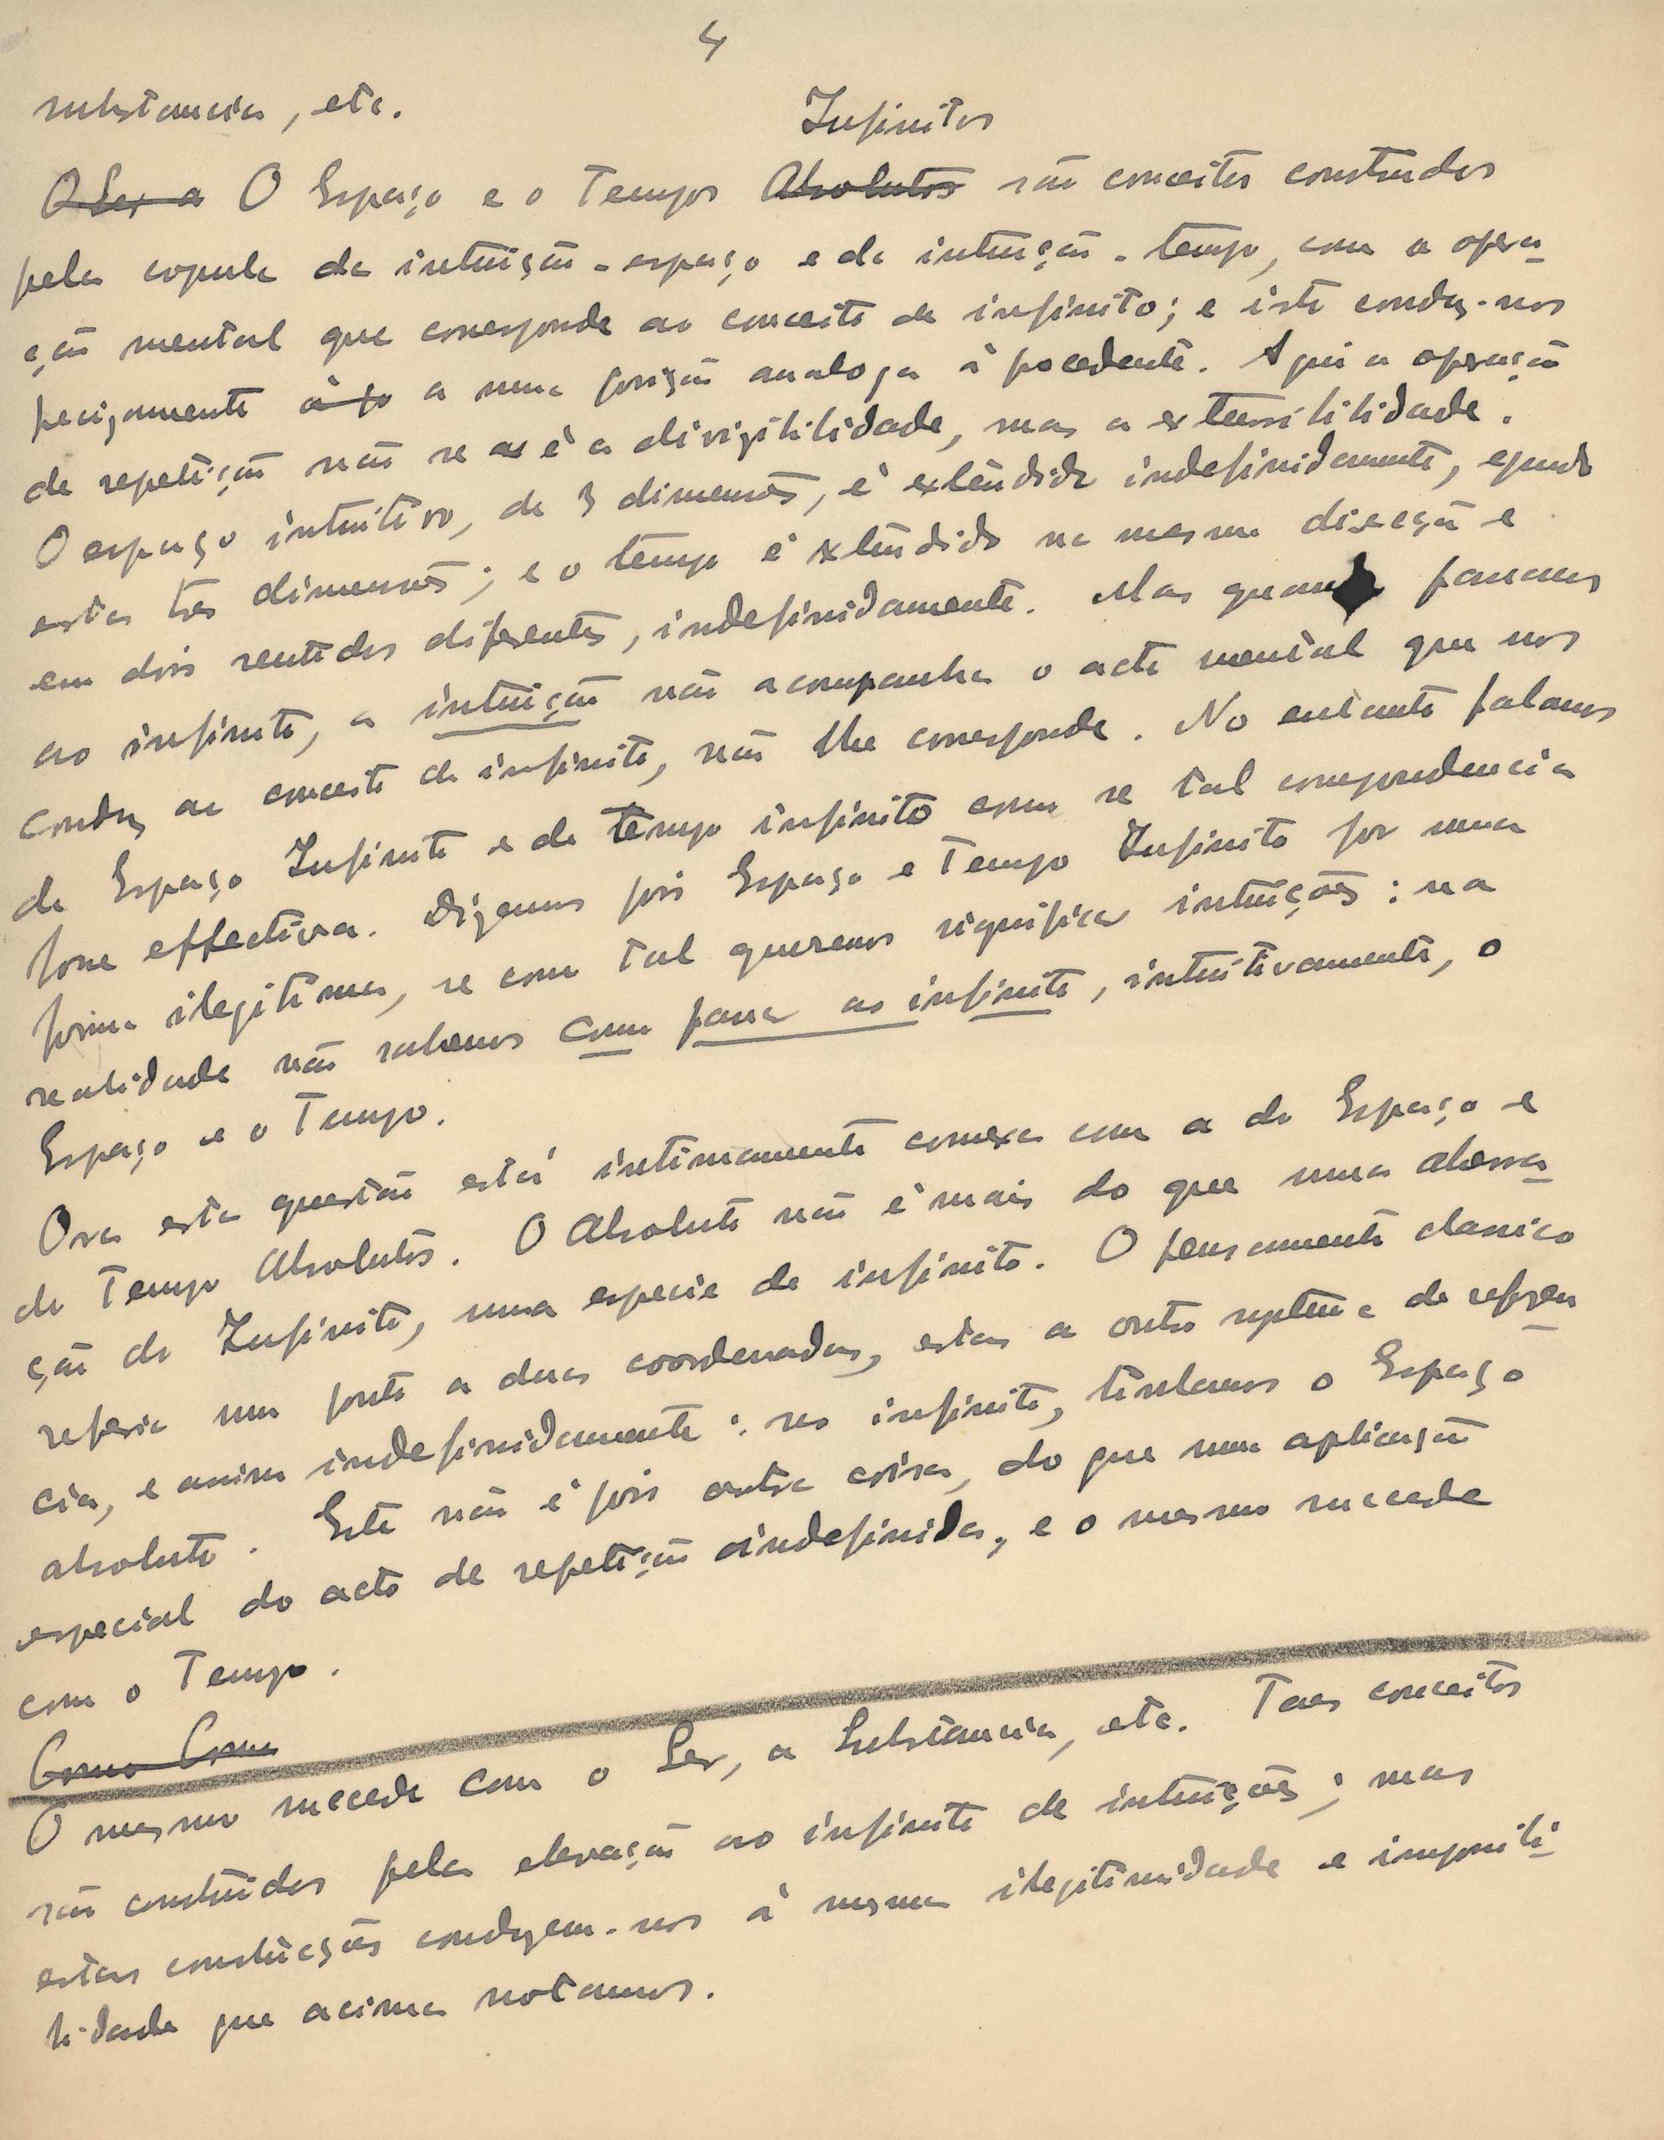 4
substancia, etc.
Infinitos
O Ser a O Espaço e o Tempo Absolutos são conceitos construidos
pela copula da intuição-espaço e da intuição-tempo, com a opera-
ção mental que corresponde ao conceito de infinito; e isto conduz-nos
precizamente à po a uma posição analoga à precedente. Aqui a operação
de repetição não se é a divizibilidade, mas a extensibilidade.
O espaço intuitivo, de 3 dimensões, é extendido indefinidamente, segundo
estas tres dimensões; e o tempo é extendido na mesma direcção e
em dois sentidos diferentes, indefinidamente. Mas quando passamos
ao infinito, a intuição não acompanha o acto mental que nos
conduz ao conceito de infinito, não lhe corresponde. No entanto falamos
de Espaço Infinito e de tempo infinito como se tal correspondencia
fosse effectiva. Dizemos pois Espaço e Tempo Infinito por uma
forma ilegitima, se com tal queremos significar intuições: na
realidade não sabemos como passar ao infinito, intuitivamente, o
Espaço e o Tempo.
Ora esta questão está intimamente conexa com a do Espaço e
do Tempo Absolutos. O Absoluto não é mais do que uma aberra-
ção do Infinito, uma especie de infinito. O pensamento classico
referia um ponto a duas coordenadas, estas a outro systema de referen-
cia, e assim indefinidamente: no infinito, tinhamos o Espaço
absoluto. Este não é pois outra coisa, do que uma aplicação
especial do acto de repetição indefinida, e o mesmo succede
com o Tempo.
Como Como
O mesmo succede com o Ser, a Substancia, etc. Taes conceitos
são construidos pela elevação ao infinito de intuições; mas
estas construcções conduzem-nos à mesma ilegitimidade e impossibi-
lidade que acima notamos.